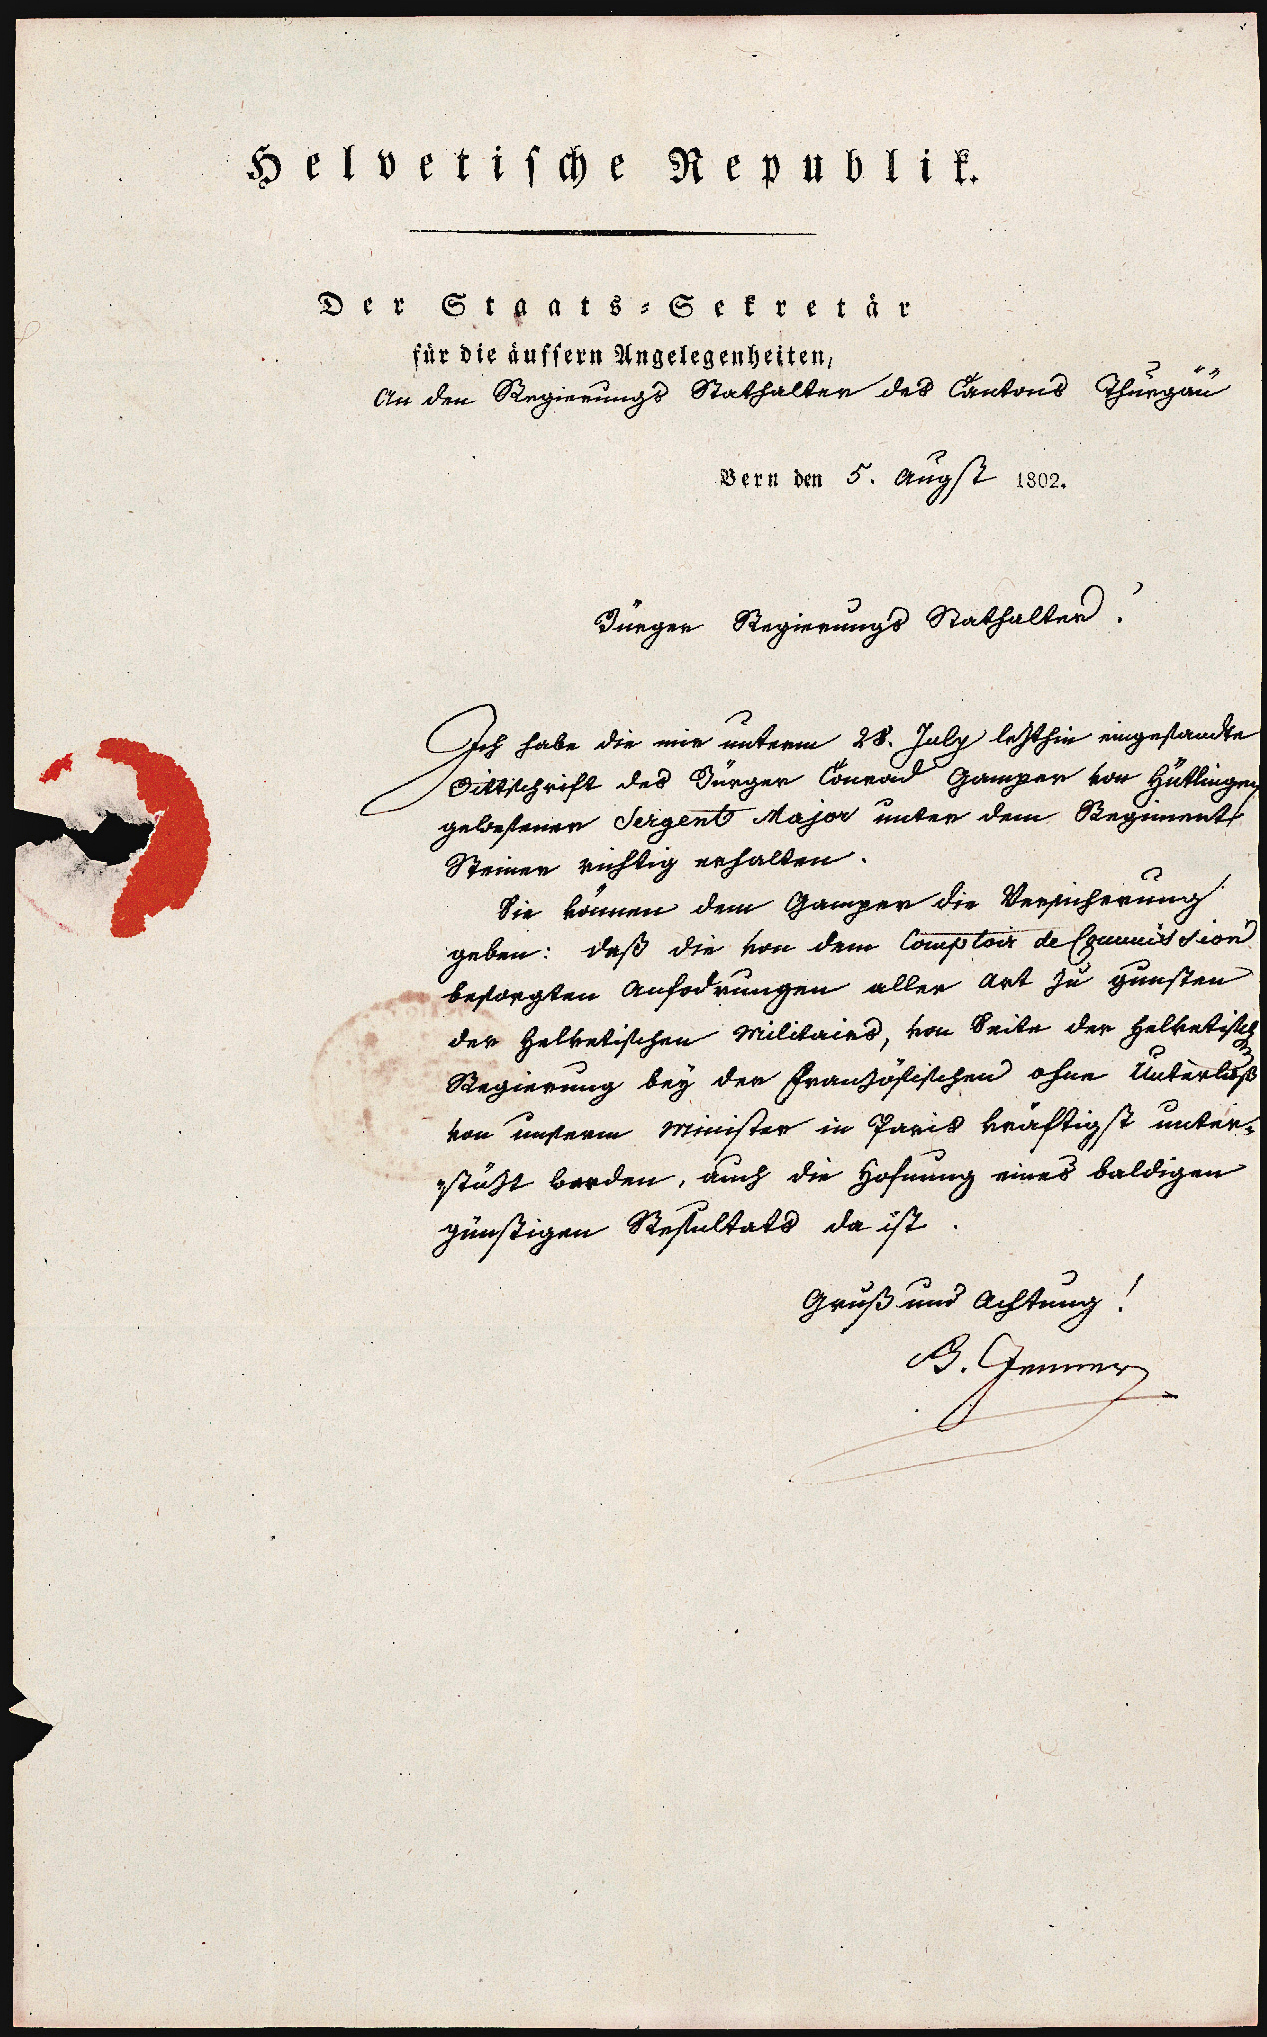 Helvetische Republik.
Der Staats-Sekretär
für die äussern Angelegenheiten,
An den Regierungs Stathalter des Cantons Thurgäu
Bern den 5. Augst 1802.
Bürger Regierungs Stathalter!
Ich habe die mir unterm 28. July letzthin eingesandte
Bittschrift des Bürger Conrad Gamper von Hüttlingen
gewesener Sergent Major unter dem Regiment
Steiner richtig erhalten.
Sie können dem Gamper die Versicherung
geben: daß die von dem Comptoir de Commission
besorgten Anfodrungen aller Art zu gunsten
der Helvetischen Militairs, von Seite der Helvetisch
Regierung bey der Französischen ohne Unterlaß
von unserm Minister in Paris kräftigst unter-
stützt werden, auch die Hofnung eines baldigen
günstigen Resultats da ist.
Gruß und Achtung!
B. Jenner